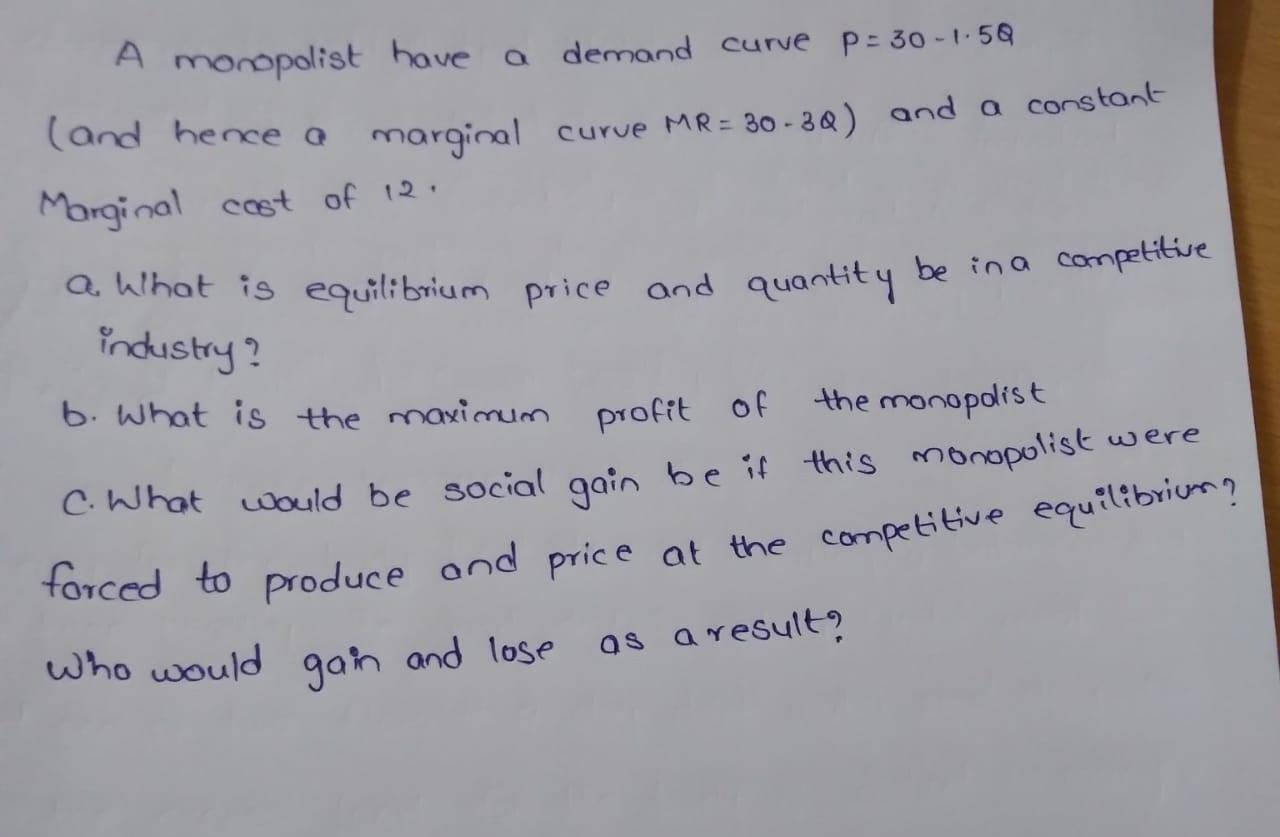 A monopolist have a demand curve P = 30 - 1.5Q
(and hence a marginal curve MR = 30 - 3Q) and a constant
Marginal cost of 12.
a. What is equilibrium price and quantity be in a competitive
industry?
b. What is the maximum profit of the monopolist
C. What would be social gain be if this monopolist were
forced to produce and price at the competitive equilibrium?
Who would gain and lose as a result?